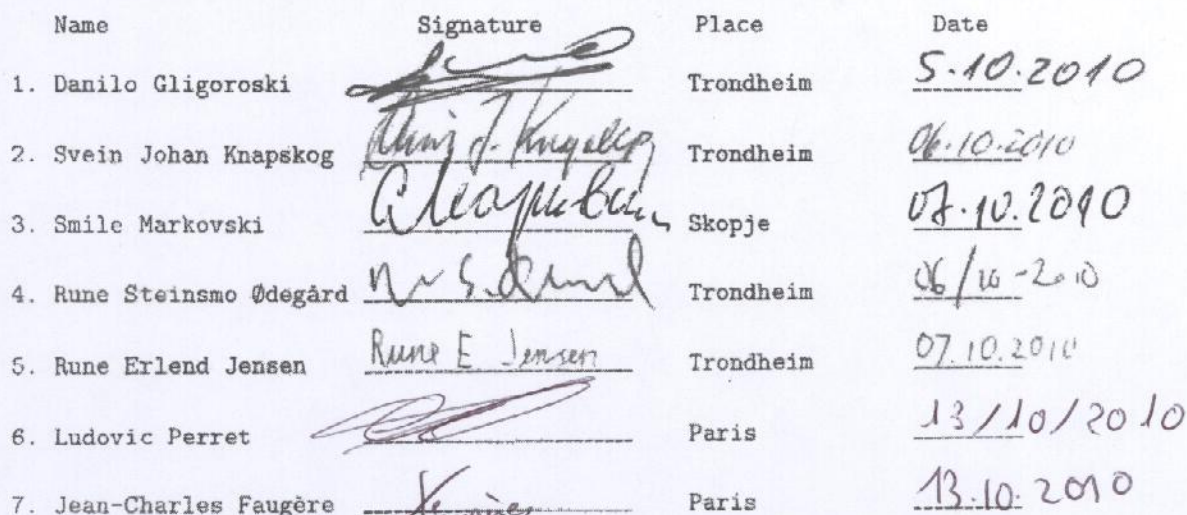 Name Signature Place Date
1. Danilo Gligoroski Trondheim 5.10.2010
2. Svein Johan Knapskog Trondheim 06.10.2010
3. Smile Markovski Skopje 07.10.2010
4. Rune Steinsmo Ødegård Trondheim 06/10-2010
5. Rune Erlend Jensen Rune E Jensen Trondheim 07.10.2010
6. Ludovic Perret Paris 13/10/2010
7. Jean-Charles Faugère Paris 13.10.2010